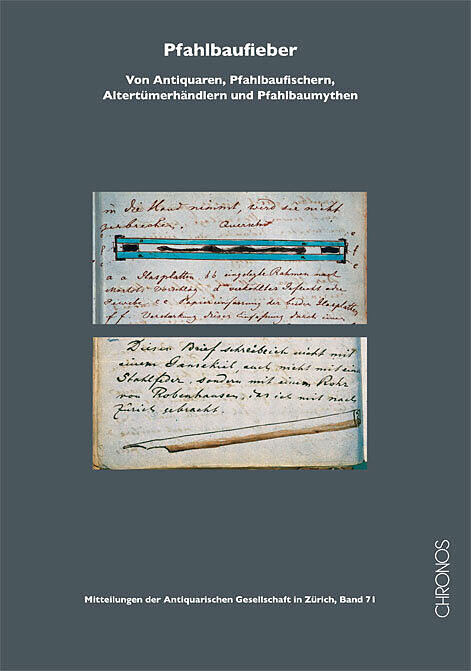 Pfahlbaufieber
Von Antiquaren, Pfahlbaufischern,
Altertümerhändlern und Pfahlbaumythen
in die Hand nimmt, wird sie nicht
zerbrechen. Querschnitt
a a Glasplatten bb eingelegte Rahmen nach
d verkohltes
cc Papiereinfassung der beiden Glasplatten
ff Verstärkung dieser Einfassung durch einen
Diesen Brief schreibe ich nicht mit
einem Gänsekiel, auch nicht mit ein
Stahlfeder, sondern mit einem Rohr
von Robenhausen, das ich mit nach
Zürich gebracht.
Mitteilungen der Antiquarischen Gesellschaft in Zürich, Band 71
CHRONOS